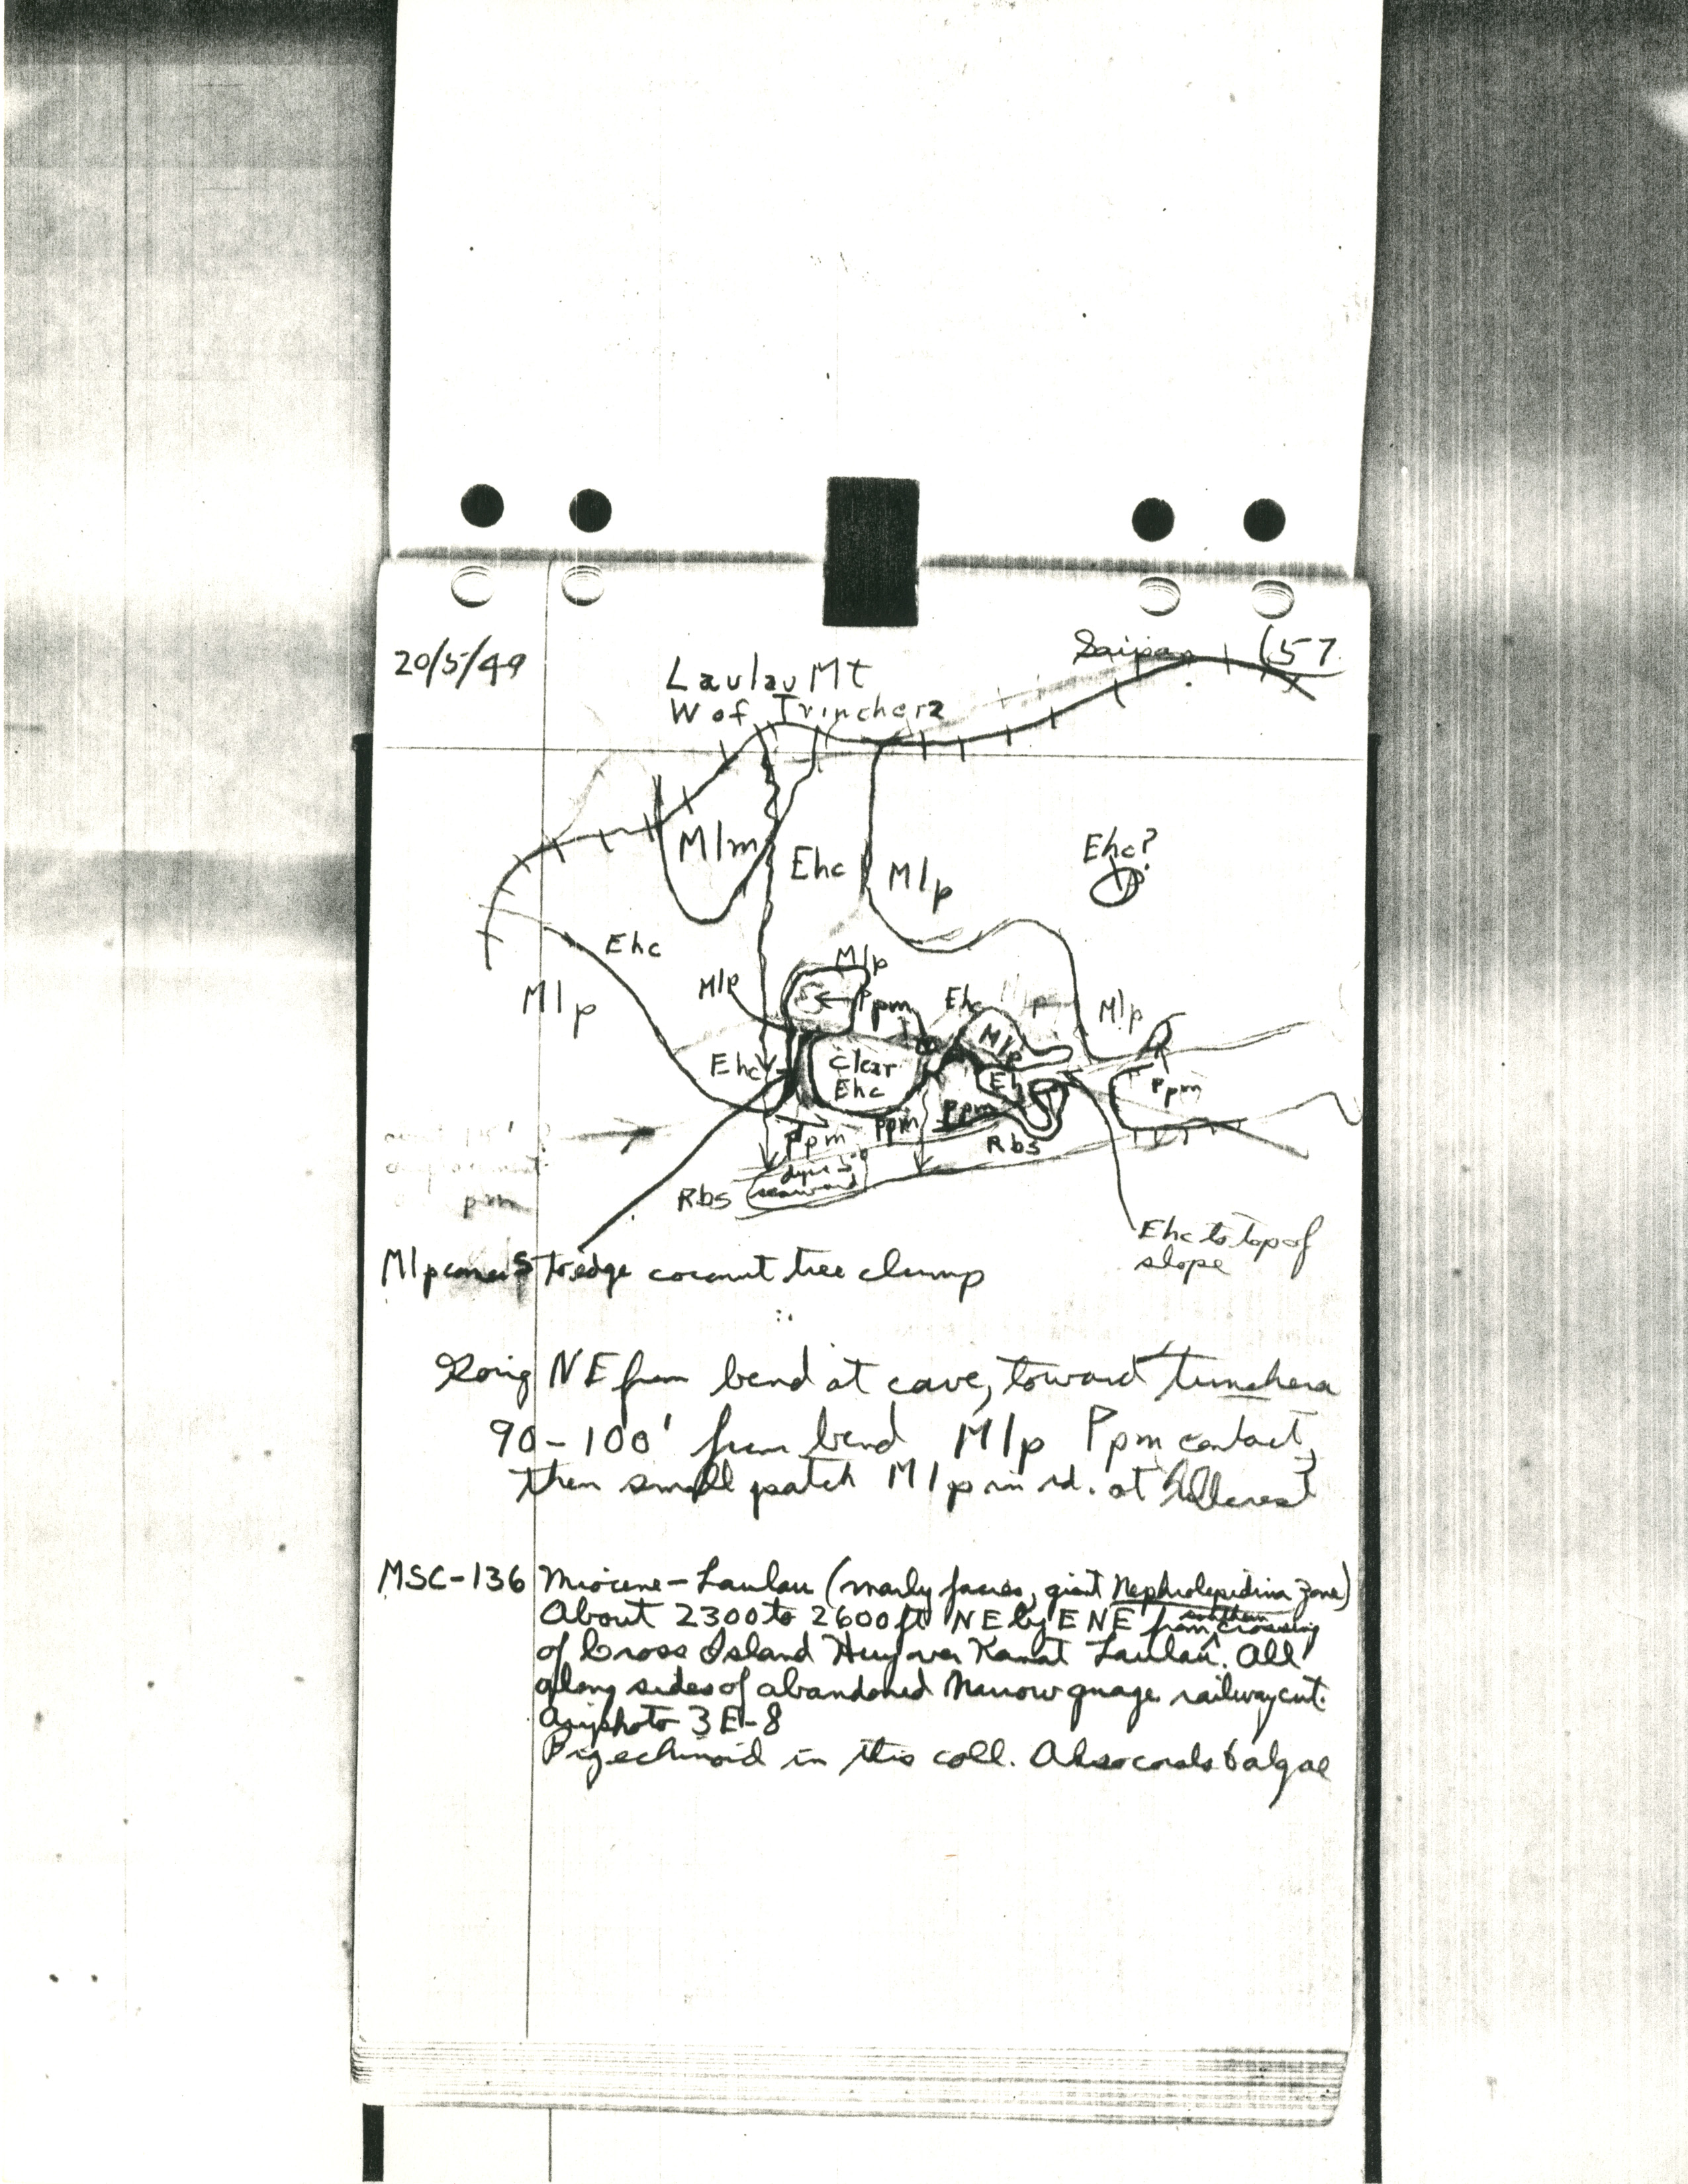 20/5/49
Saipan (57
Laulau Mt
W of Trinchera
Mlm
Ehc
Mlp
Ehc?
Ehc
Mlp
Mlp
Mlp
Ppm
Ehc
Mlp
Mlp
Ehc
Clear
Ehc
Eh
Ppm
Ppm
Ppm
Ppm
Rbs
Rbs
seaward
pm
Ehc to top of
slope
Mlp comes to edge coconut tree clump
Going NE from bend at cave, toward Trinchera
90-100' from bend Mlp Ppm contact,
then small patch Mlp in rd. at hillcrest
MSC-136 Miocene - Laulau (marly facies, giant Nephrolepidina zone)
About 2300 to 2600 ft NE by ENE from southern crossing
of Cross Island Hwy over Kanat Laulau. All
along sides of abandoned narrow guage railway cut.
Airphoto 3E-8
Big echinoid in this coll. Also corals & algae